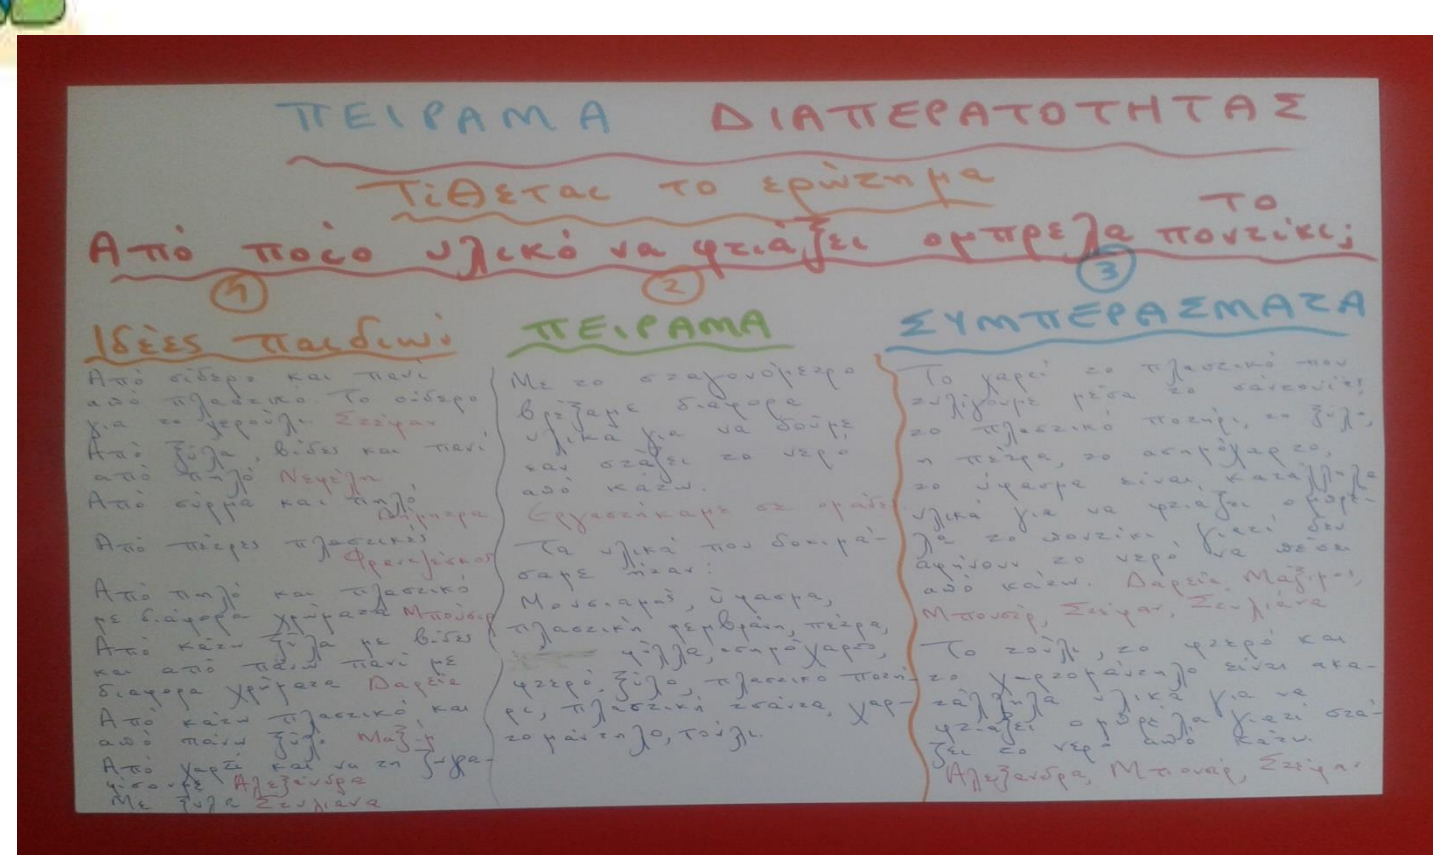 ΠΕΙΡΑΜΑ ΔΙΑΠΕΡΑΤΟΤΗΤΑΣ
Τίθεται το ερώτημα
Από ποιο υλικό να φτιάξει ομπρελα το ποντίκι;
1
Ιδέες παιδιών
Από σίδερο και πανί
από πλαστικό. Το σίδερο
για το χερούλι Στέφαν
Από ξύλα, βίδες και πανί
από πηλό Νεφέλη
Από σύρμα και πηλό
Δήμητρα
Από πέτρες πλαστικές
Φραντζέσκος
Από πηλό και πλαστικό
με διάφορα χρώματα Μπουσάρ
Από κάτω ξύλα με βίδες
και από πάνω πανί με
διαφορα χρώματα Δαρεία
Από κάτω πλαστικό και
από πάνω ξύλο Μαξίμ
Από χαρτί και να τη ζωγρα-
φίσουμε Αλεξάνδρα
Με ξύλα Στυλιανα
2
ΠΕΙΡΑΜΑ
Με το σταγονόμετρο
βρέξαμε διαφορα
υλικά για να δούμε
εαν στάξει το νερό
από κάτω.
Εργαστήκαμε σε ομάδες
Τα υλικά που δοκιμά-
σαμε ήταν:
Μουσαμάς, ύφασμα,
πλαστική μεμβράνη, πέτρα,
φύλλα, ασημόχαρτο,
φτερό, ξύλο, πλαστικο ποτή-
ρι, πλαστική τσάντα, χαρ-
τομάντηλο, τούλι.
3
ΣΥΜΠΕΡΑΣΜΑΤΑ
Το χαρτί το πλαστικό που
τυλίγουμε μέσα το σάντουιτς,
το πλαστικό ποτήρι, το ξύλο,
η πέτρα, το ασημόχαρτο,
το ύφασμα είναι κατάλληλα
υλικά για να φτιάξει ομπρέ-
λα το ποντίκι γιατί δεν
αφήνουν το νερό να πέσει
από κάτω. Δαρεία, Μάξιμος,
Μπουσάρ, Στέφαν, Στυλιάνα
Το τούλι, το φτερό και
το χαρτομάντηλο είναι ακα-
τάλληλα υλικά για να
φτιάξει ομπρέλα γιατί στά-
ζει το νερό από κάτω.
Αλεξανδρα, Μπουσάρ, Στέφαν